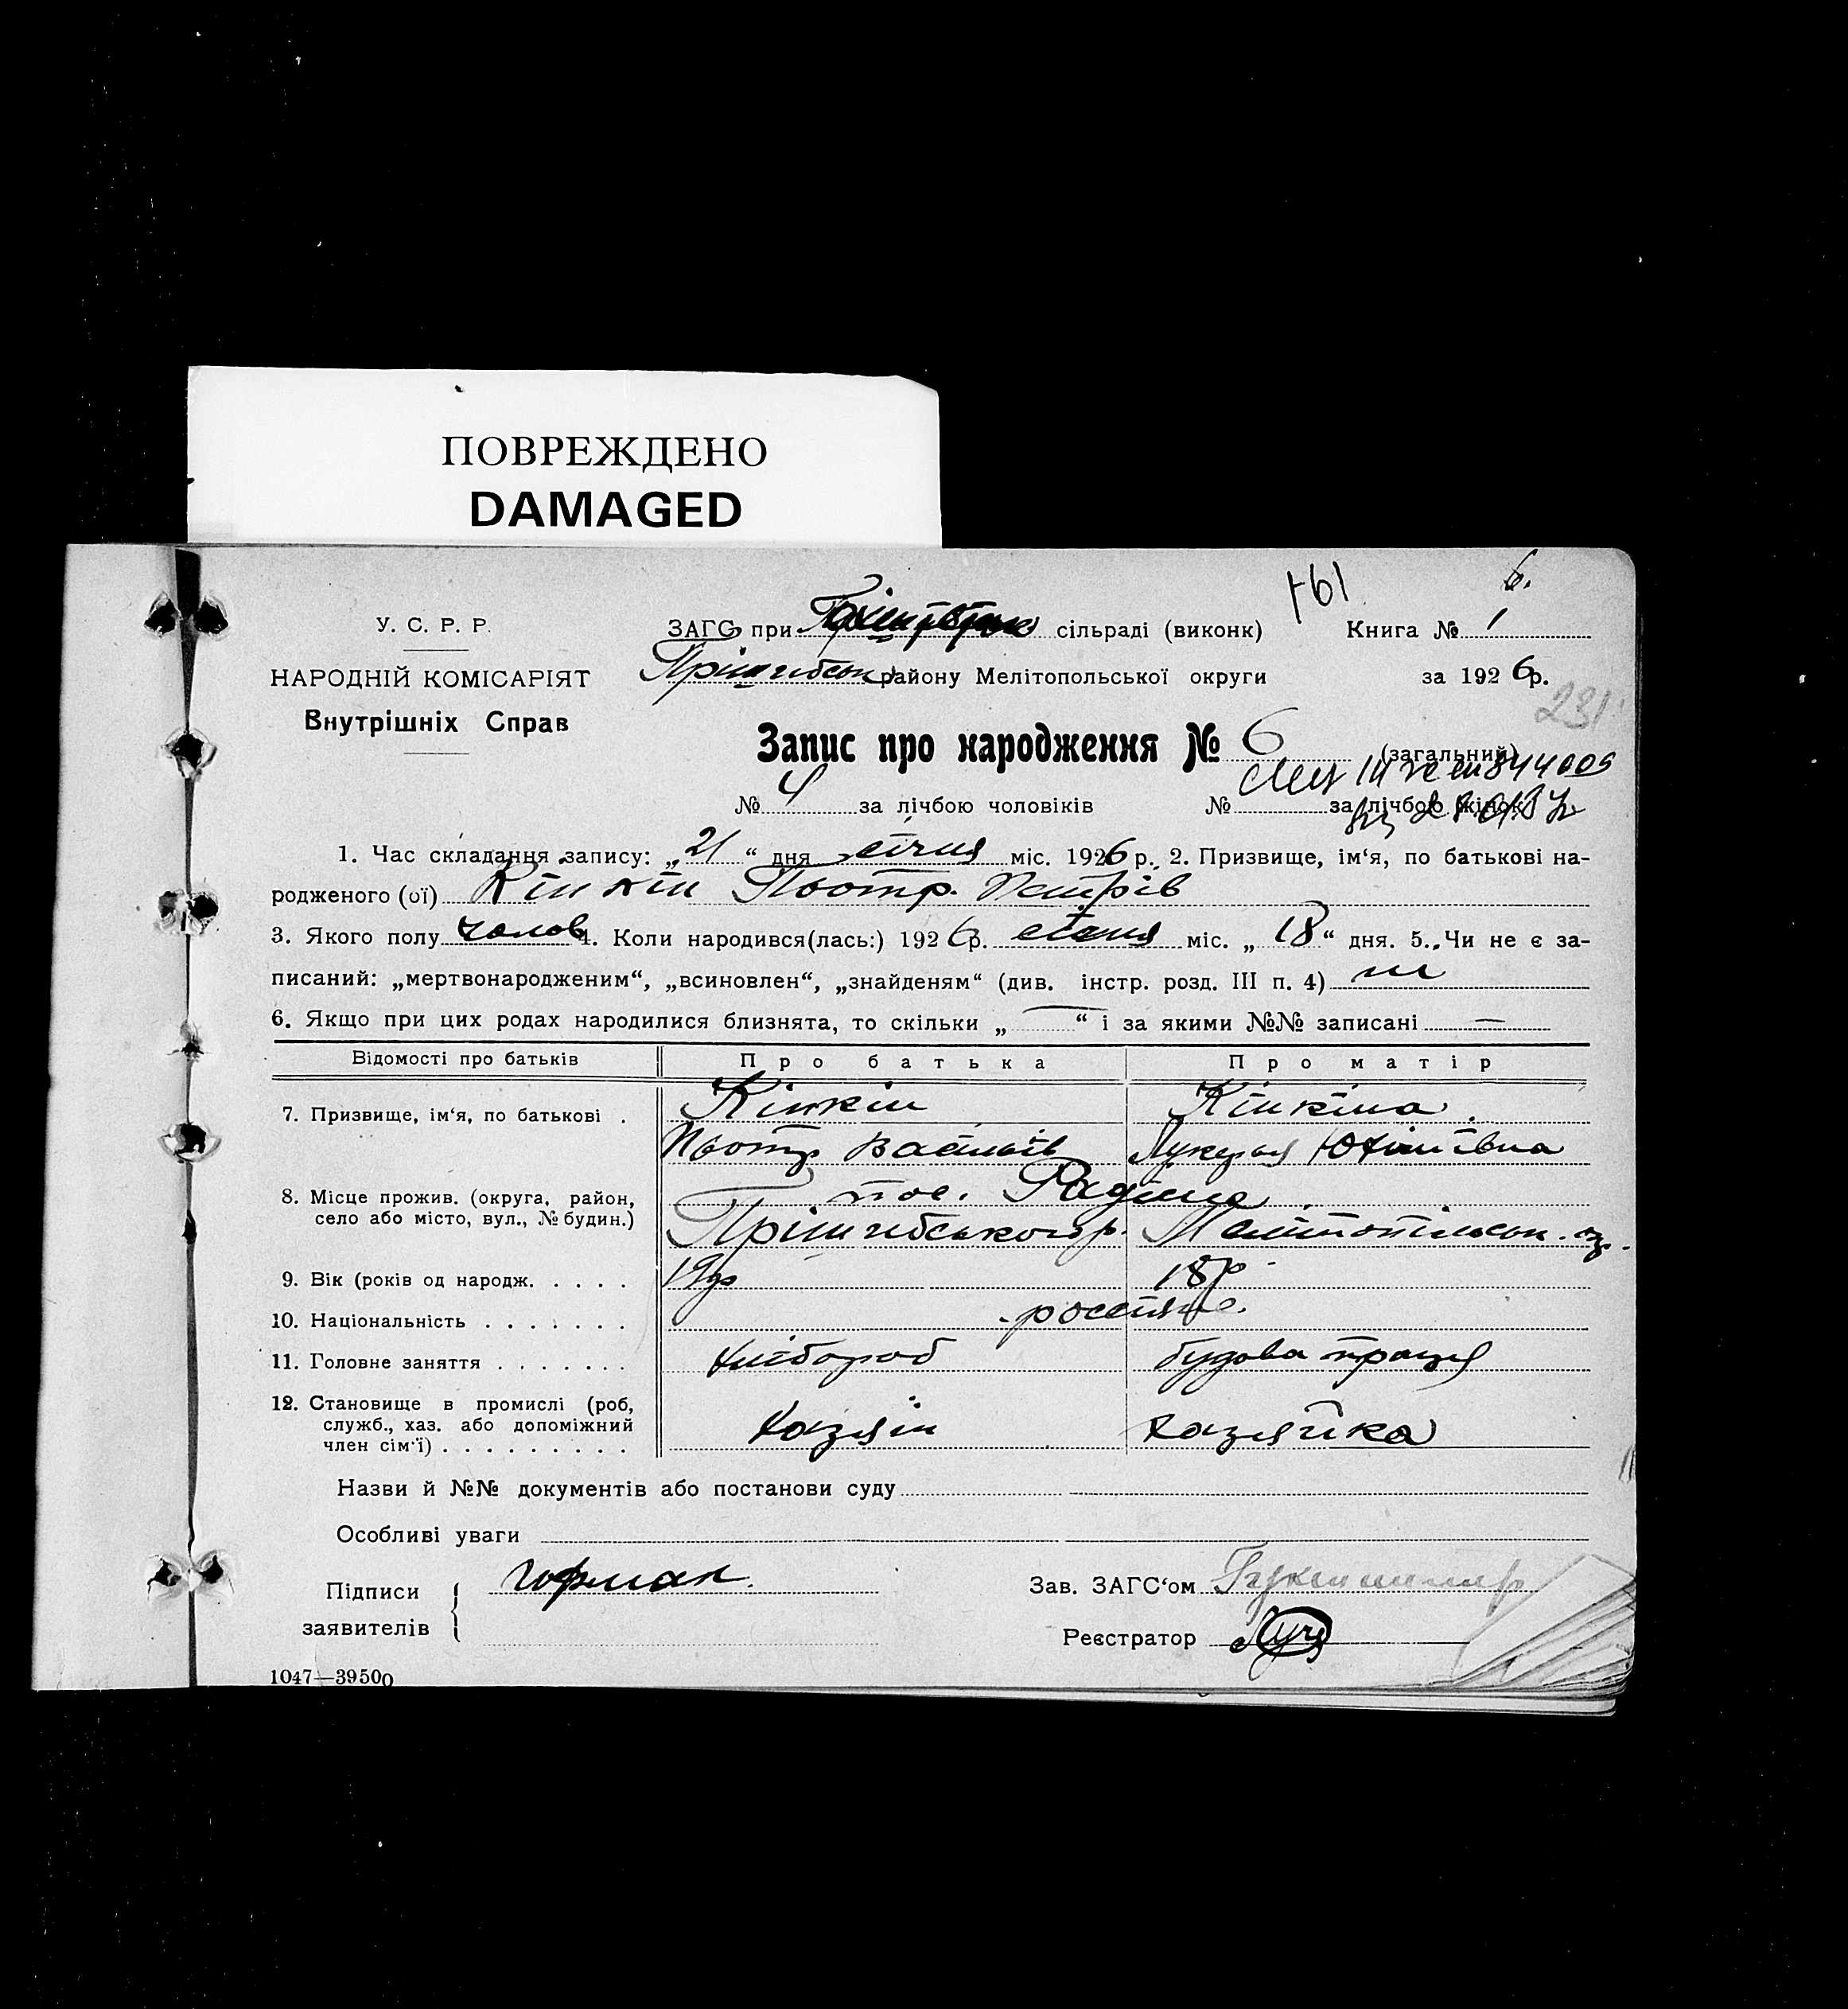 ПОВРЕЖДЕНО
DAMAGED
161
6.
У. С. Р. Р.
ЗАГС при сільраді (виконк) Книга № 1
НАРОДНІЙ КОМІСАРІЯТ
Пришибськ району Мелітопольської округи за 1926 р.
Внутрішніх Справ
231
Запис про народження № 6 (загальний)
№ 4 за лічбою чоловіків № за лічбою жінок
1. Час складання запису: „21“ дня січня міс. 1926 р. 2. Призвище, ім‘я, по батькові на-
родженого (ої) Кінкін Пьотр. Петрів
3. Якого полу чолов 4. Коли народився(лась:) 1926 р. січня міс. „18“ дня. 5. Чи не є за-
писаний: „мертвонародженим“, „всиновлен“, „знайденям“ (див. інстр. розд. III п. 4) ні
6. Якщо при цих родах народилися близнята, то скільки „—“ і за якими №№ записані —
Відомості про батьків Про батька Про матір
7. Призвище, ім‘я, по батькові . Кінкін Кінкіна
Пьотр Васильів Лукерья Юхімівна
8. Місце прожив. (округа, район, село або місто, вул., № будин.) пос. Радіна
Прішибського р. Мелітопільськ. о.
9. Вік (років од народж. . . . . 19р 18р
10. Національність . . . . . . . россіяне.
11. Головне заняття . . . . . . . хлібороб будова праця
12. Становище в промислі (роб, служб., хаз. або допоміжний член сім‘ї) . . . . . . . . . хазяін хазяйка
Назви й №№ документів або постанови суду
Особливі уваги
Підписи заявителів
Зав. ЗАГС‘ом
Реєстратор
1047—39500